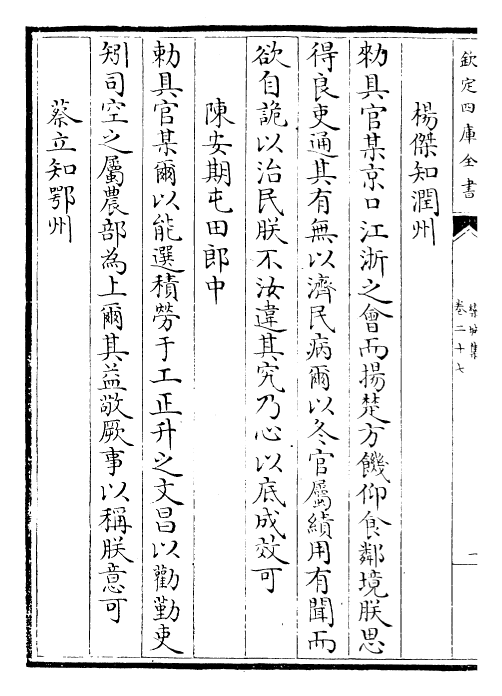 欽定四庫全書
欒城集
卷二十七
一
楊傑知潤州
勅具官某京口江浙之會而揚楚方饑仰食鄰境朕思
得良吏通其有無以濟民病爾以冬官屬績用有聞而
欲自詭以治民朕不汝違其究乃心以底成效可
陳安期屯田郎中
勅具官某爾以能選積勞于工正升之文昌以勸勤吏
矧司空之屬農部為上爾其益敬厥事以稱朕意可
蔡立知鄂州